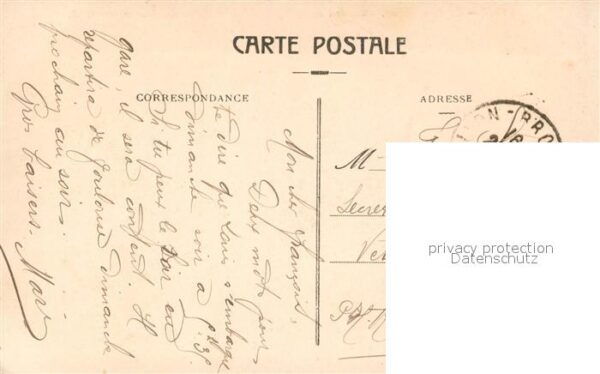 CARTE POSTALE
CORRESPONDANCE
ADRESSE
Mon cher François,
Deux mots pour
te dire que Louis s'embarque
dimanche soir à
Si tu peux le voir en
gare, il sera content. Il
repartira de Toulouse dimanche
prochain au soir.
Gros baisers. Mar
ON - BRO
M
Secré
Ver
privacy protection
Datenschutz